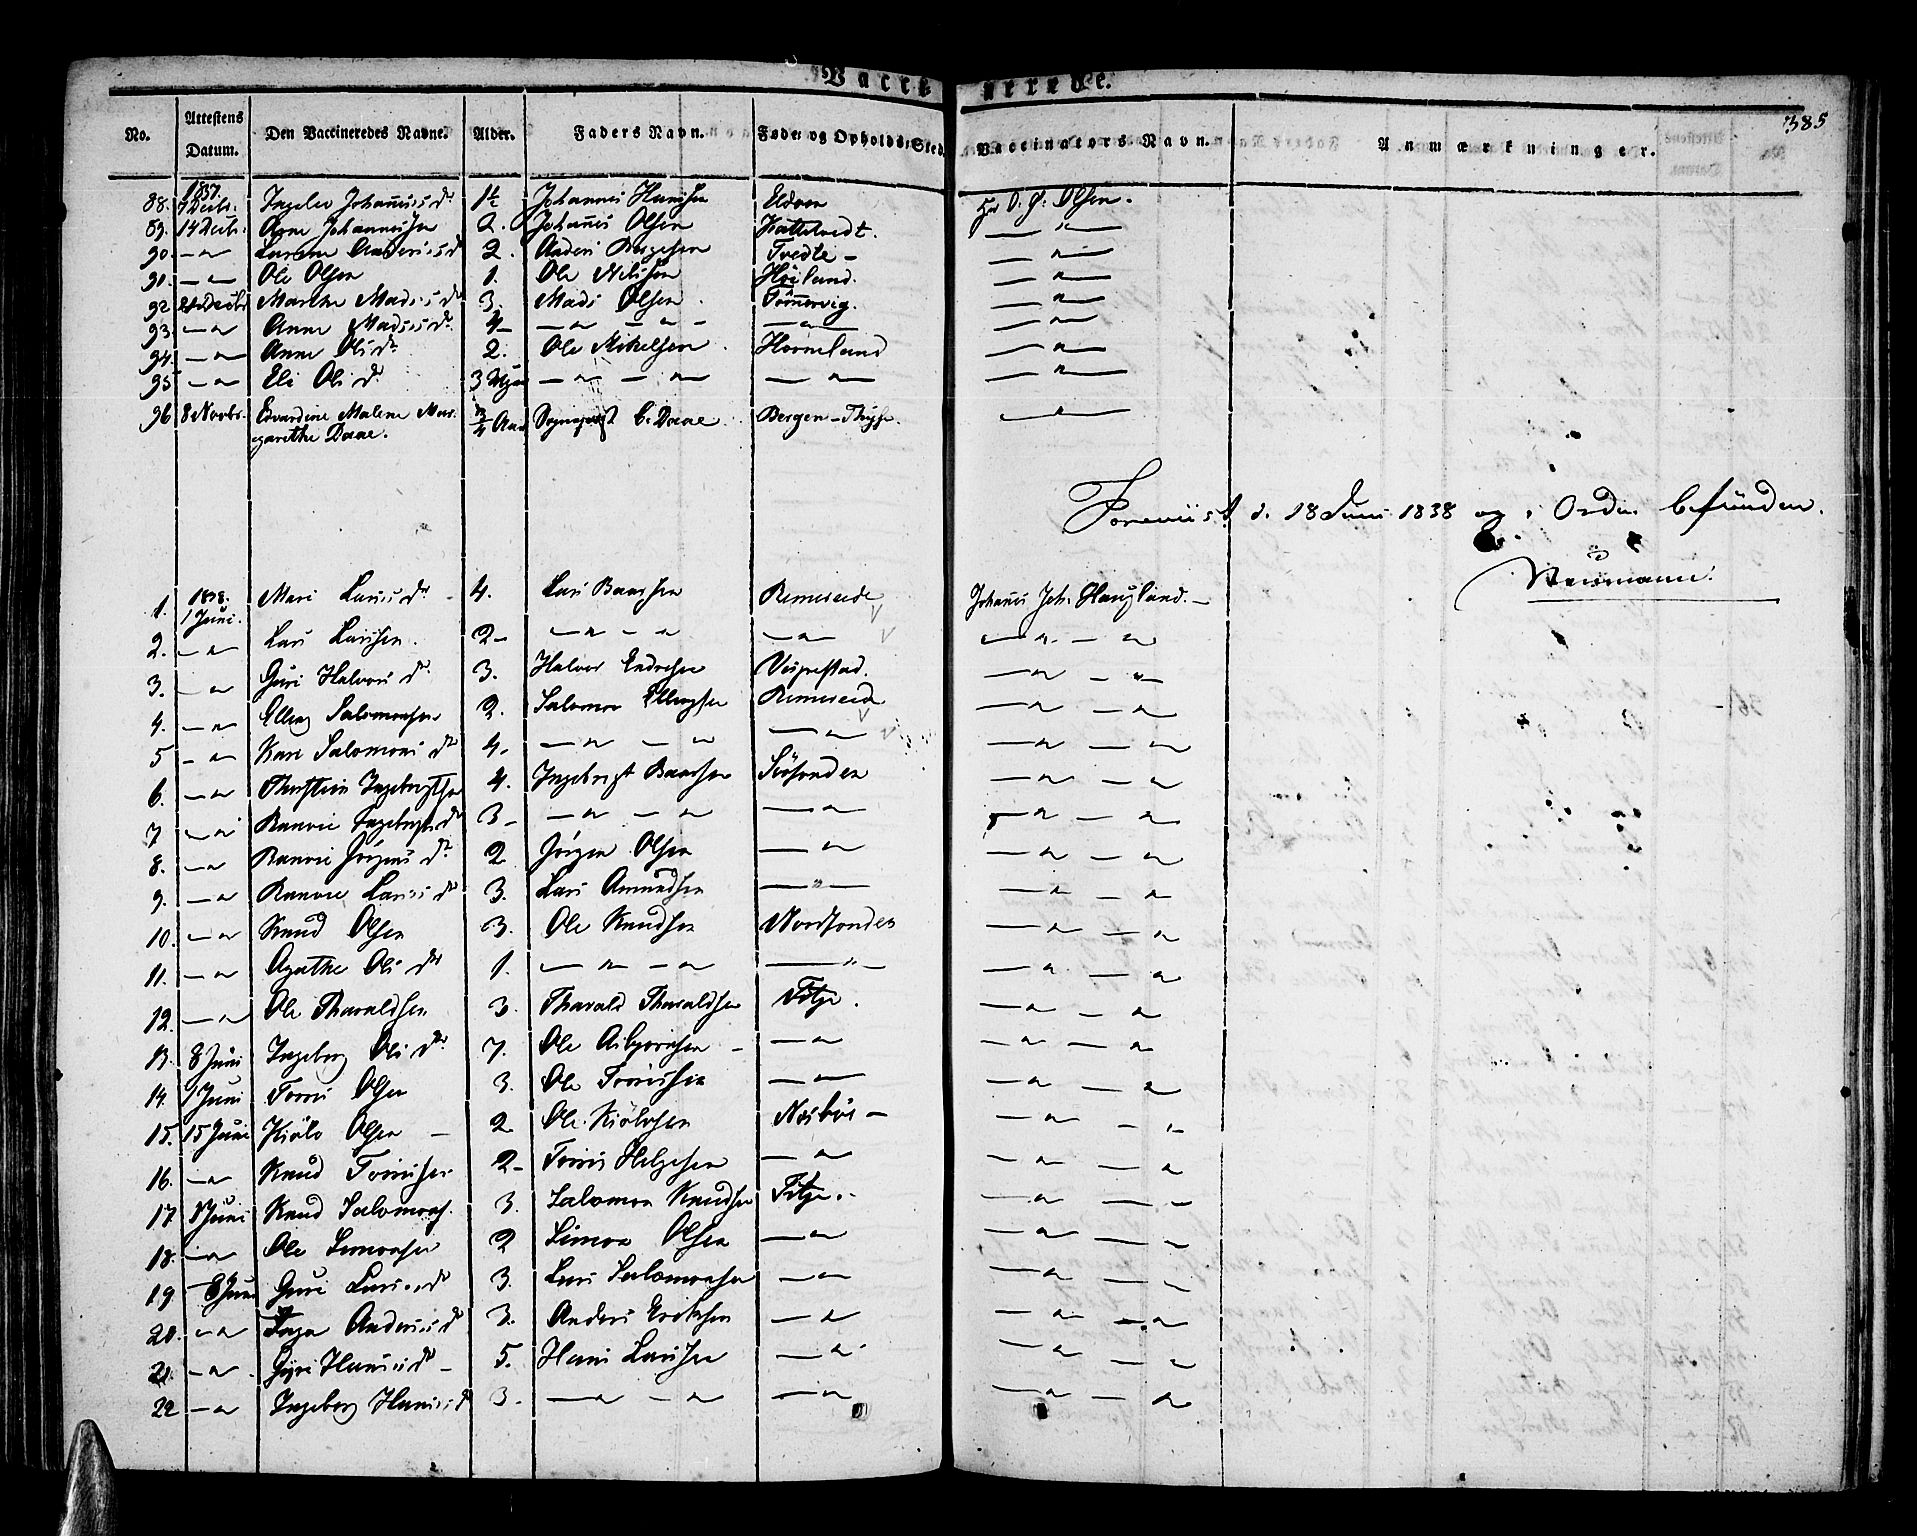 Vacci nerede.
385
No. Attestens Datum. Den Vaccineredes Navne. Alder. Faders Navn. Føde- og Opholds-Sted. Vaccinators Navn. Anmærkninger.
1837.
88. 7 Decbr. Johannisd. 1½ Johannes Hansen Eldøen Hr O. G. Olsen.
89. 14 Decbr. Arne Johannessen 2. Johannes Olsen Kattetvedt. — " —
90. — " Andersd. 2. Anders Tvedte — — " —
91. — " Ole Olsen 1. Ole Nielsen Høiland. — " —
92 Decbr Marthe Madsd. 3. Mads Olsen Tømmervig. — " —
93. — " Anne Madsd. 4 — — " — " — — " — — " —
94. — " Anne Olsd. 2. Ole Mikelsen Horneland — " —
95 — " Eli Olsd. 3 — " — " — " — " —
96 8 Novbr. Edvardine Malene Mar- ¾ Aar Sognepræst C. Daae Bergen — — " —
garethe Daae.
Foreviist d. 18 Juni 1838 og i Orden befunden.
Neumann.
1838.
1. 1 Juni. Mari Larsd. 4. Lars Baarsen Remereide Johannes Joh. Haugland. —
2. — " Lars Larsen. 2 — — " — " — " — " — "
3. — " Guri Halvorsd. 3. Halvor Endresen Vespestad. — " — "
4. — " Elling Salomonsen 2. Salomon Ellingsen Remereide — " — "
5 — " Kari Salomonsd. 4. — " — " — " — " — "
6. — " Thorsten Ingebrigtsen 4. Ingebrigt Baarsen Siøsonden — " — "
7 — " Ranvei Ingebrigtsd. 3 — — " — " — " — " — "
8. — " Ranvei Jørgensd. 2 Jørgen Olsen — " — " — "
9. — " Ranvei Larsd. 3. Lars Amundsen — " — — " — "
10. — " Knud Olsen 3. Ole Knudsen Nordsonden — " — "
11. — " Agathe Olsd. 1. — " — " — " — — " — "
12. — " Ole Tharaldsen 3. Tharald Tharaldsen Fitje. — " — "
13. 8 Juni Ingeborg Olsd. 7. Ole Asbjørnsen — — " — " — "
14. 1 Juni Torris Olsen 3. Ole Torrissen — " — " — "
15. 15 Juni Kiøln Olsen — 2. Ole Kiølnsen Næsbøe — — " — "
16. — " Knud Torrissen 2 — Torris Helgesen — " — " — "
17. 1 Juni Knud Salomons. 3. Salomon Knudsen Fitje. — " — "
18. — " Ole Simonsen 2 Simon Olsen — " — " — "
19 8 Juni Guri Larsd. 3. Lars Salomonsen — " — " — "
20. — " Inga Andersd. 3. Anders Eriksen — " — " — "
21. — " Gyri Hansd. — 5. Hans Larsen — " — " — "
22 — " Ingeborg Hansd. 3. — " — " — " — " — "